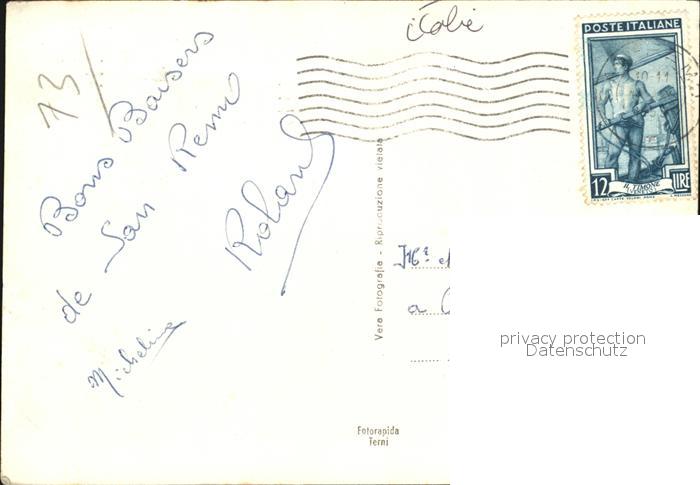 italie
13
Bons Baisers
de San Remo
Roland
Micheline
POSTE ITALIANE
12 LIRE
IL TIMONE
Vera Fotografia - Riproduzione vietata
a
privacy protection
Datenschutz
Fotorapida
Terni